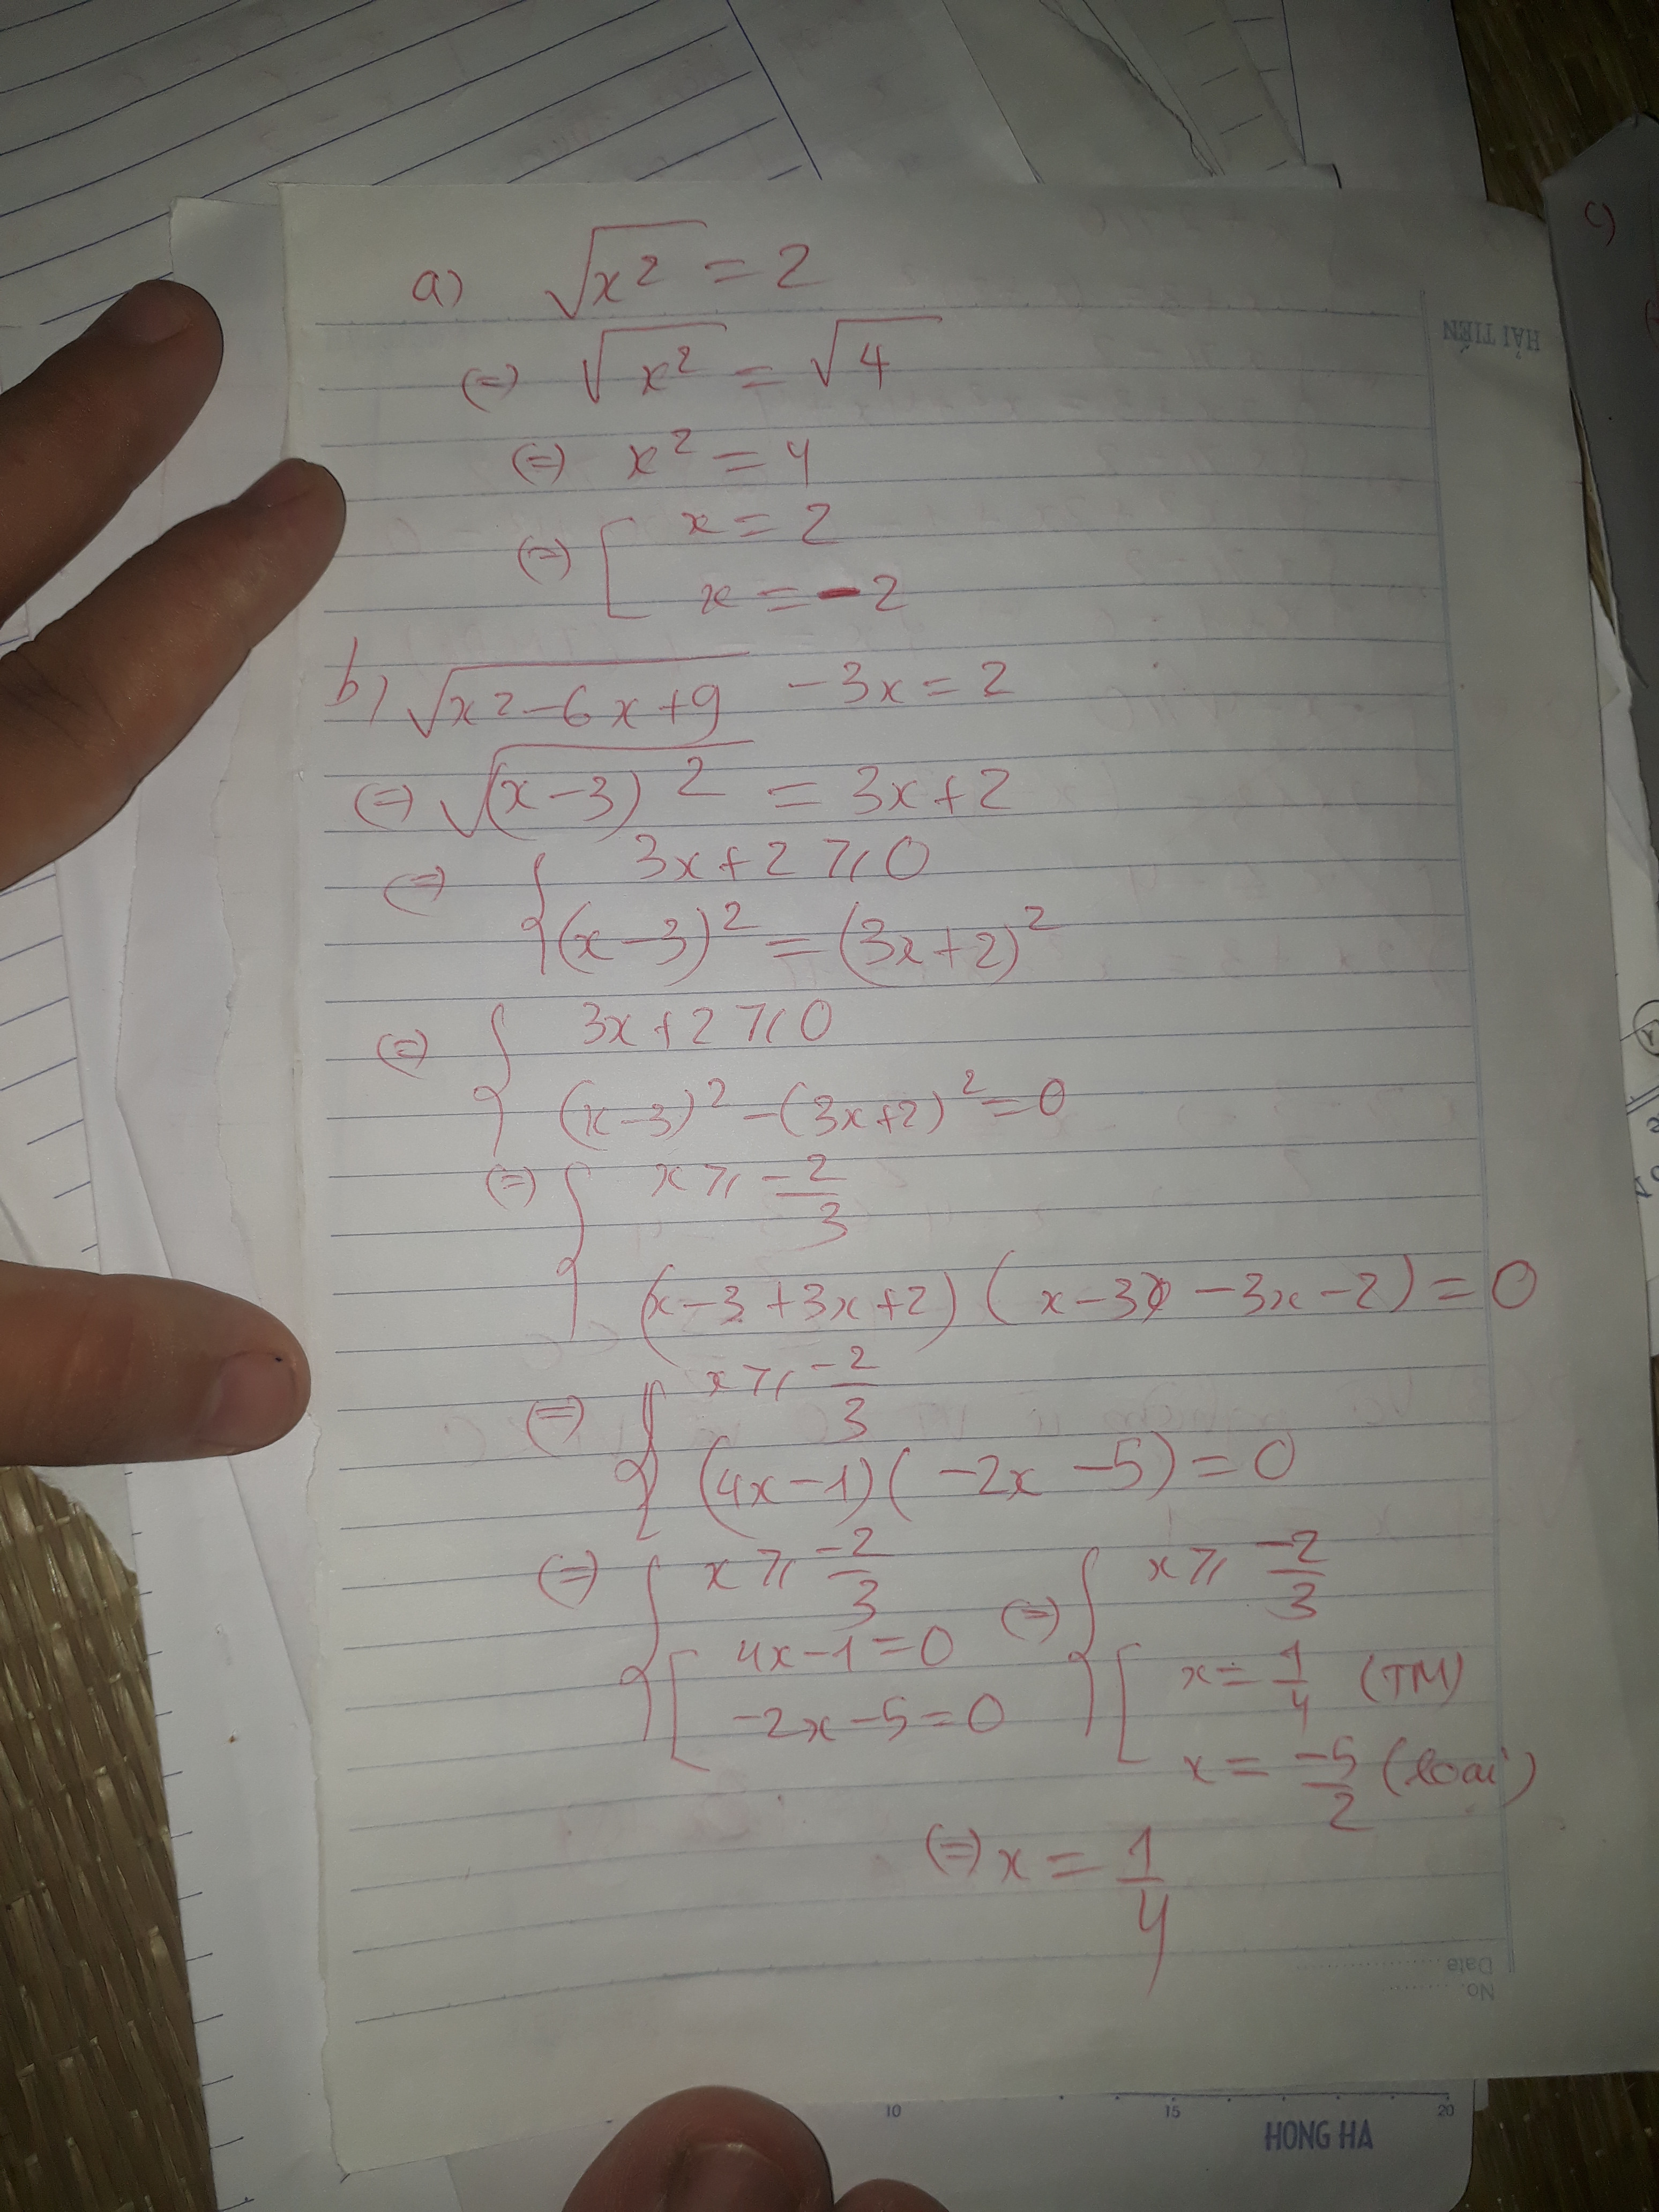 a) √x² = 2
(=) √x² = √4
(=) x² = 4
(=) [ x = 2
x = -2
b) √x²-6x+9 -3x = 2
(=) √(x-3)² = 3x+2
(=) { 3x+2 ⩾ 0
(x-3)² = (3x+2)²
(=) { 3x+2 ⩾ 0
(x-3)² - (3x+2)² = 0
(=) { x ⩾ -2/3
(x-3+3x+2) (x-3 -3x-2) = 0
(=) { x ⩾ -2/3
(4x-1)(-2x-5) = 0
(=) { x ⩾ -2/3 (=) { x ⩾ -2/3
[ 4x-1=0 [ x = 1/4 (TM)
-2x-5=0 x = -5/2 (loại)
(=) x = 1/4
HẢI TIẾN
No.
Date
c)
10 15 20
HONG HA